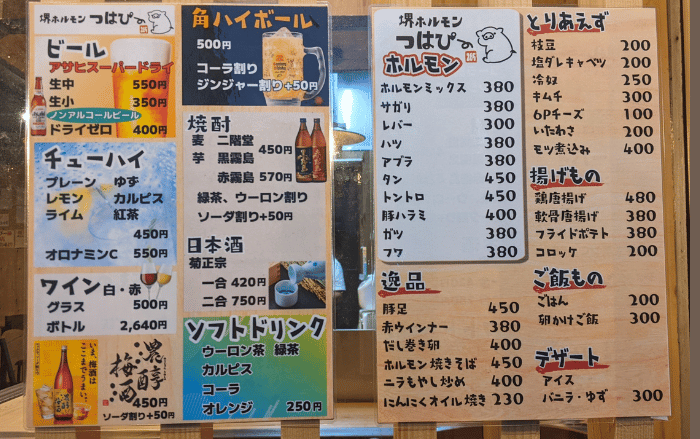 堺ホルモン つはぴー
ビール
アサヒスーパードライ
生中 550円
生小 350円
ノンアルコールビール
ドライゼロ 400円
チューハイ
プレーン ゆず
レモン カルピス
ライム 紅茶
450円
オロナミンC 550円
ワイン 白・赤
グラス 500円
ボトル 2,640円
いま、梅酒は
ここまでうまい。
濃醇梅酒
450円
ソーダ割り+50円
角ハイボール
500円
コーラ割り
ジンジャー割り+50円
焼酎
麦 二階堂
芋 黒霧島 450円
赤霧島 570円
緑茶、ウーロン割り
ソーダ割り+50円
日本酒
菊正宗
一合 420円
二合 750円
ソフトドリンク
ウーロン茶 緑茶
カルピス
コーラ
オレンジ 250円
堺ホルモン
つはぴー
ホルモン
ホルモンミックス 380
サガリ 380
レバー 300
ハツ 380
アブラ 380
タン 450
トントロ 450
豚ハラミ 400
ガツ 380
フワ 380
逸品
豚足 450
赤ウインナー 380
だし巻き卵 400
ホルモン焼きそば 450
ニラもやし炒め 400
にんにくオイル焼き 230
とりあえず
枝豆 200
塩ダレキャベツ 200
冷奴 250
キムチ 300
6Pチーズ 100
いたわさ 200
モツ煮込み 400
揚げもの
鶏唐揚げ 480
軟骨唐揚げ 380
フライドポテト 380
コロッケ 200
ご飯もの
ごはん 200
卵かけご飯 300
デザート
アイス
バニラ・ゆず 300